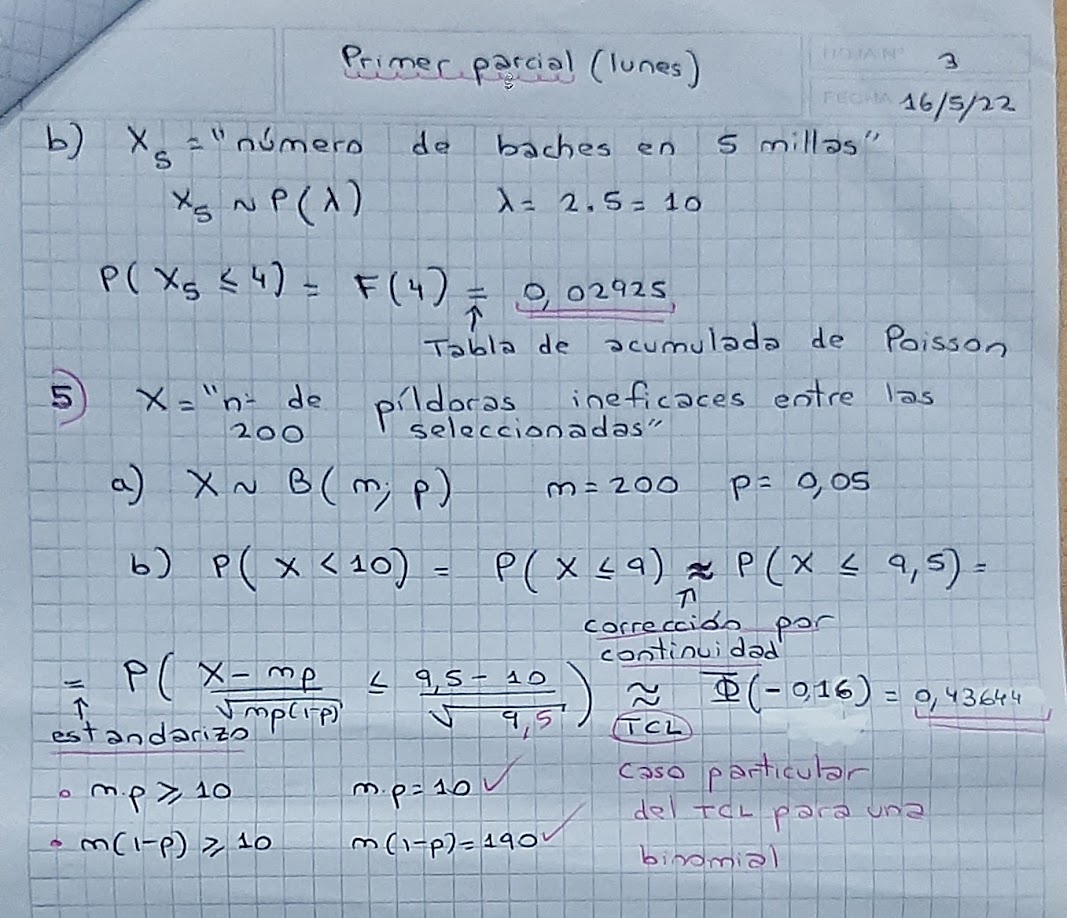 Primer parcial (lunes)
HOJA Nº 3
FECHA 16/5/22
b) X₅ = "número de baches en 5 millas"
X₅ ~ P(λ) λ = 2.5 = 10
P(X₅ ≤ 4) = F(4) = 0,02925
↑
Tabla de acumulada de Poisson
5) X = "nº de píldoras ineficaces entre las
200 seleccionadas"
a) X ~ B(m; p) m = 200 p = 0,05
b) P(X < 10) = P(X ≤ 9) ≈ P(X ≤ 9,5) =
↑
corrección por
continuidad
= P((X - mp)/√(mp(1-p)) ≤ (9,5 - 10)/√9,5) ≈ Φ(-0,16) = 0,43644
↑
estandarizo TCL
• m.p ≥ 10 m.p = 10 ✓ caso particular
del TCL para una
• m(1-p) ≥ 10 m(1-p) = 190 ✓
binomial